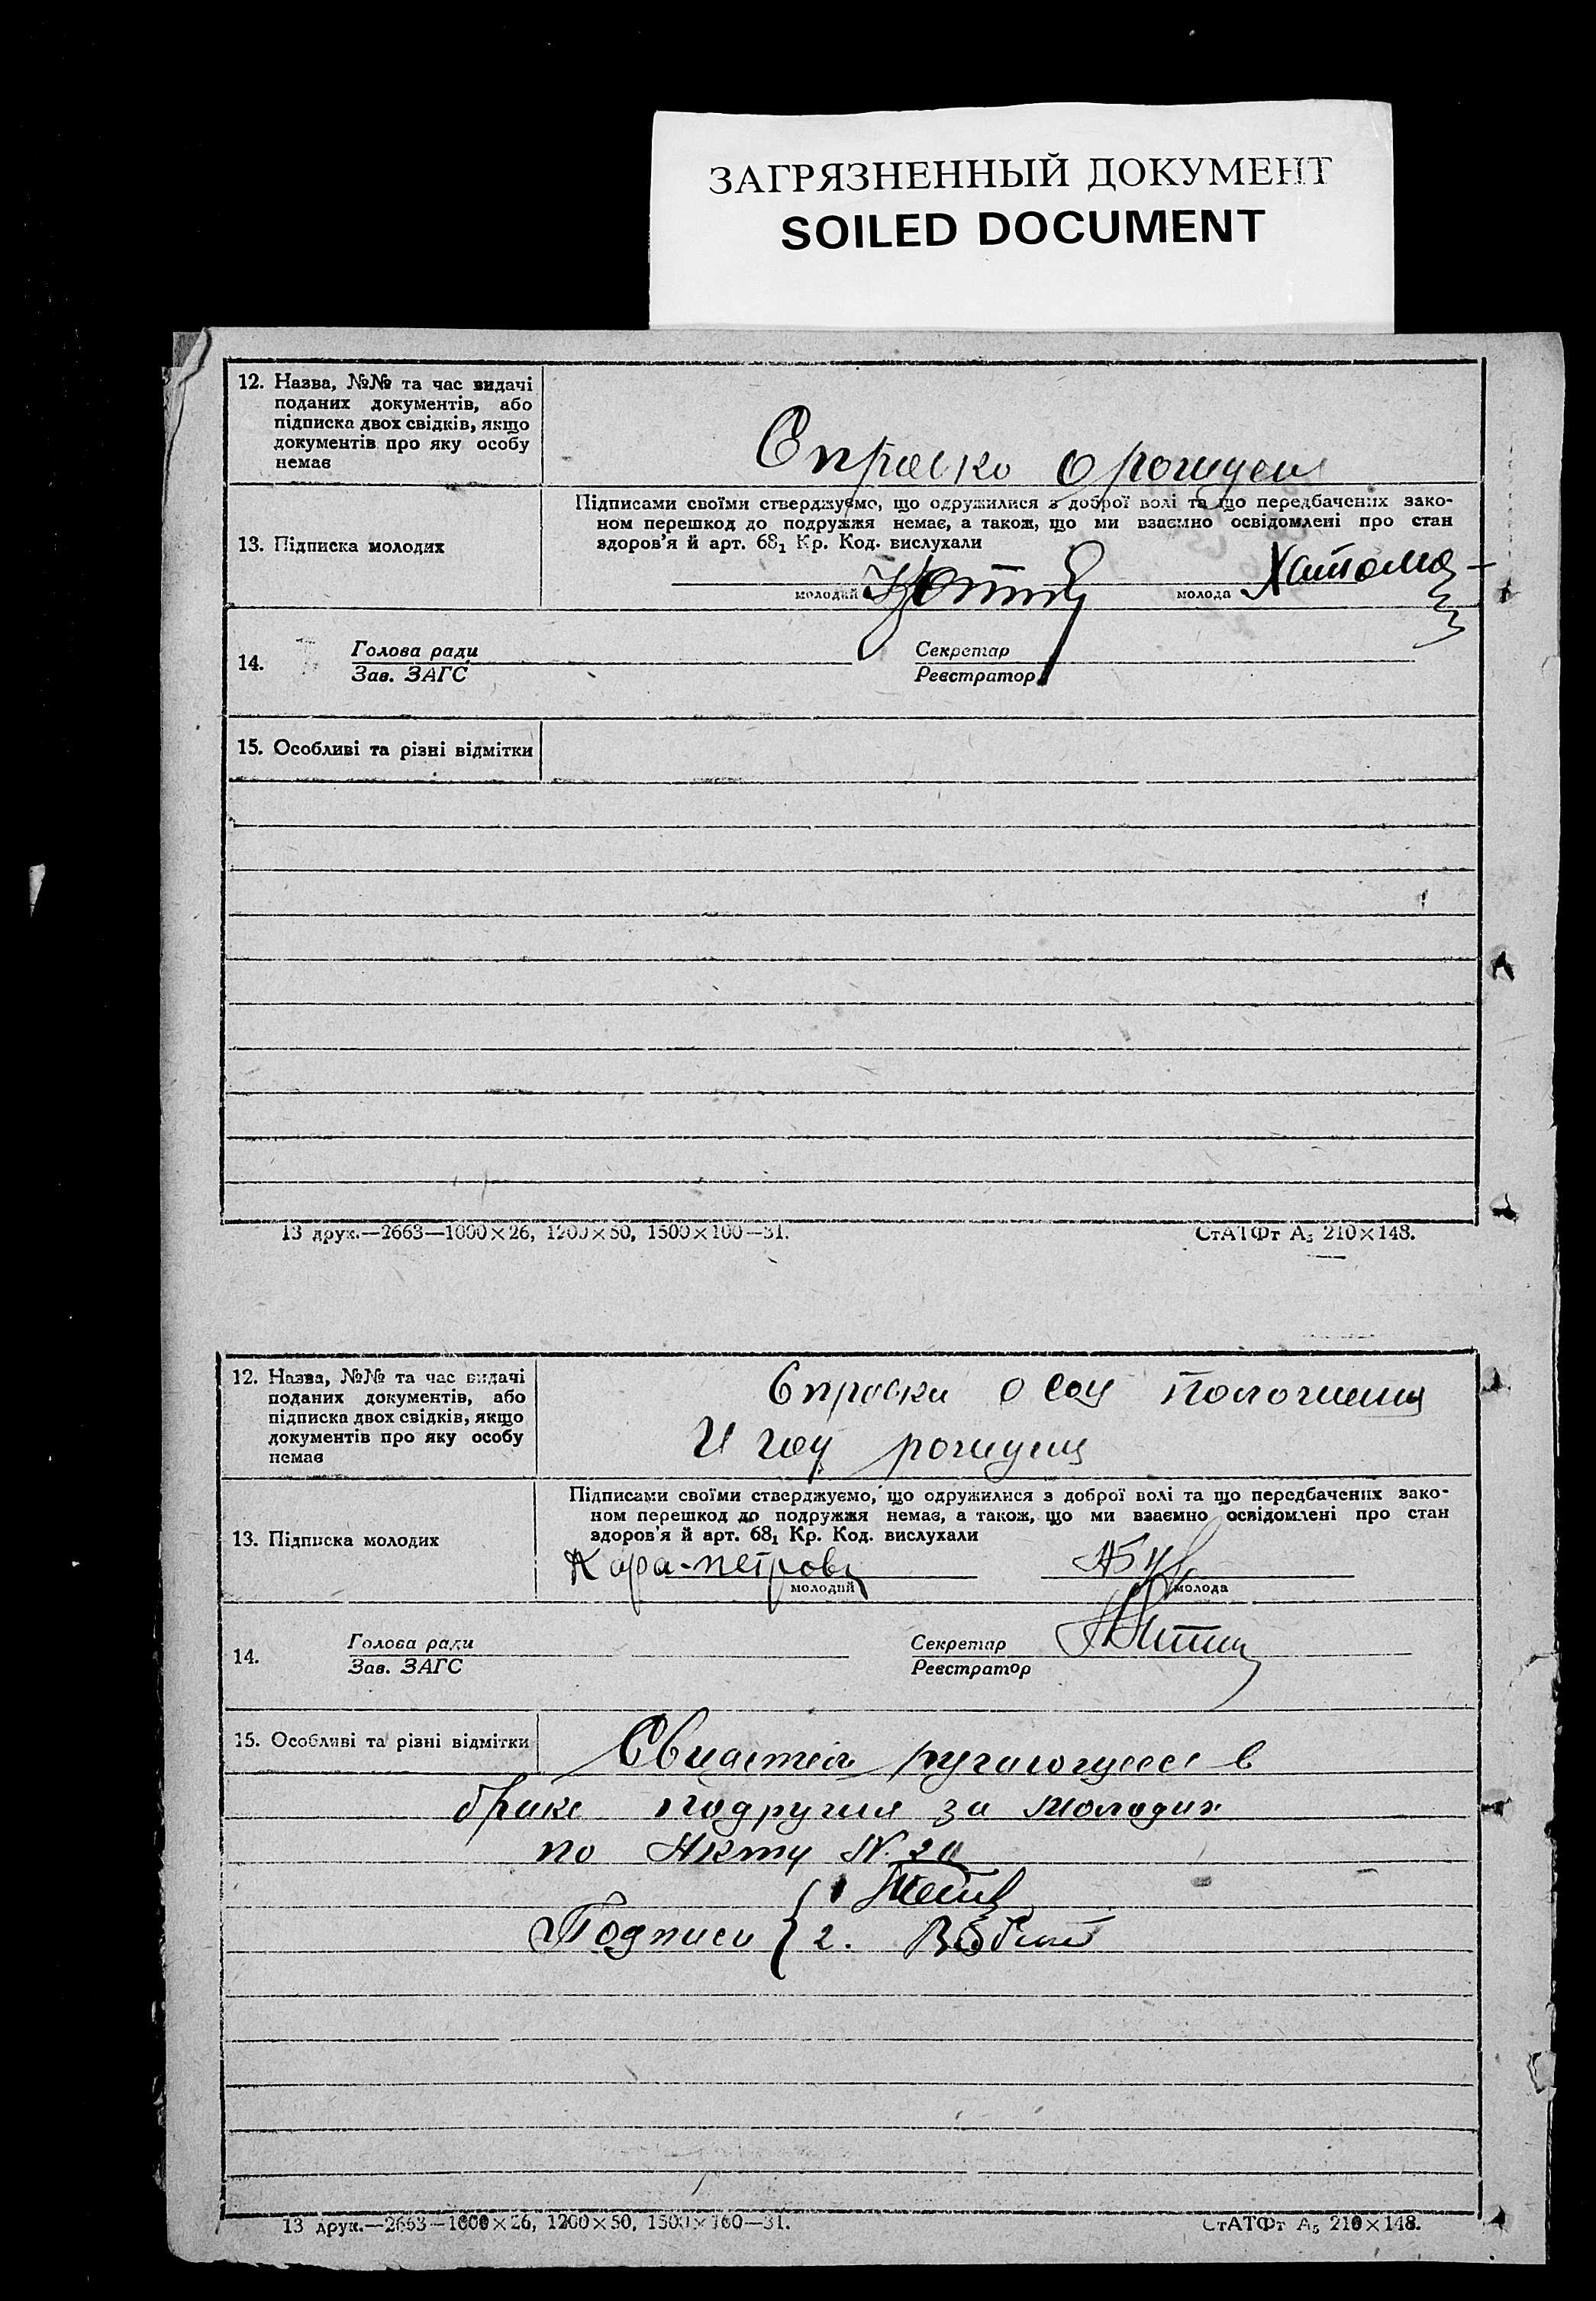 ЗАГРЯЗНЕННЫЙ ДОКУМЕНТ
SOILED DOCUMENT
12. Назва, №№ та час видачі
поданих документів, або
підписка двох свідків, якщо
документів про яку особу
немає
Справко о рожден
13. Підписка молодих
Підписами своїми стверджуємо, що одружилися з доброї волі та що передбачених зако-
ном перешкод до подружжя немає, а також, що ми взаємно освідомлені про стан
здоров'я й арт. 68₁ Кр. Код. вислухали
молодий
молода
14.
Голова ради
Зав. ЗАГС
Секретар
Реєстратор
15. Особливі та різні відмітки
13 друк.—2663—1000×26, 1200×50, 1500×100—31.
СтАТФт А₅ 210×148.
12. Назва, №№ та час видачі
поданих документів, або
підписка двох свідків, якщо
документів про яку особу
немає
Справки о соц положении
И год рожден
13. Підписка молодих
Підписами своїми стверджуємо, що одружилися з доброї волі та що передбачених зако-
ном перешкод до подружжя немає, а також, що ми взаємно освідомлені про стан
здоров'я й арт. 68₁ Кр. Код. вислухали
Кара-петров
молодий
молода
14.
Голова ради
Зав. ЗАГС
Секретар
Реєстратор
15. Особливі та різні відмітки
в
браке за молодих
по Акту N. 20
Подписи { 1
2.
13 друк.—2663—1000×26, 1200×50, 1500×100—31.
СтАТФт А₅ 210×148.